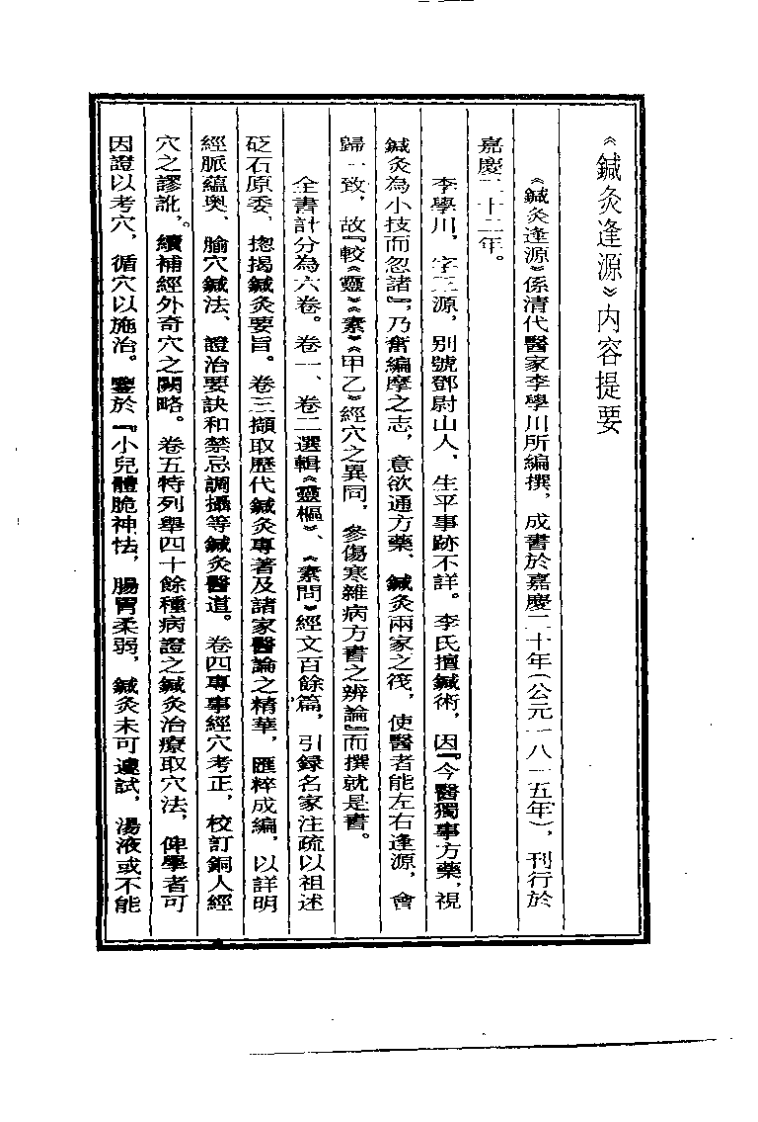 《鍼灸逢源》内容提要
《鍼灸逢源》係清代醫家李學川所編撰，成書於嘉慶二十年（公元一八一五年），刊行於
嘉慶二十二年。
李學川，字三源，別號鄧尉山人，生平事跡不詳。李氏擅鍼術，因『今醫獨事方藥，視
鍼灸為小技而忽諸』，乃奮編摩之志，意欲通方藥、鍼灸兩家之筏，使醫者能左右逢源，會
歸一致，故『較《靈》《素》《甲乙》經穴之異同，參傷寒雜病方書之辨論』而撰就是書。
全書計分為六卷。卷一、卷二選輯《靈樞》、《素問》經文百餘篇，引録名家注疏以祖述
砭石原委，摠揭鍼灸要旨。卷三擷取歷代鍼灸專著及諸家醫論之精華，匯粹成編，以詳明
經脈蘊奥、腧穴鍼法、證治要訣和禁忌調攝等鍼灸醫道。卷四專事經穴考正，校訂銅人經
穴之謬訛，續補經外奇穴之闕略。卷五特列舉四十餘種病證之鍼灸治療取穴法，俾學者可
因證以考穴，循穴以施治。鑒於『小兒體脆神怯，腸胃柔弱，鍼灸未可遽試，湯液或不能